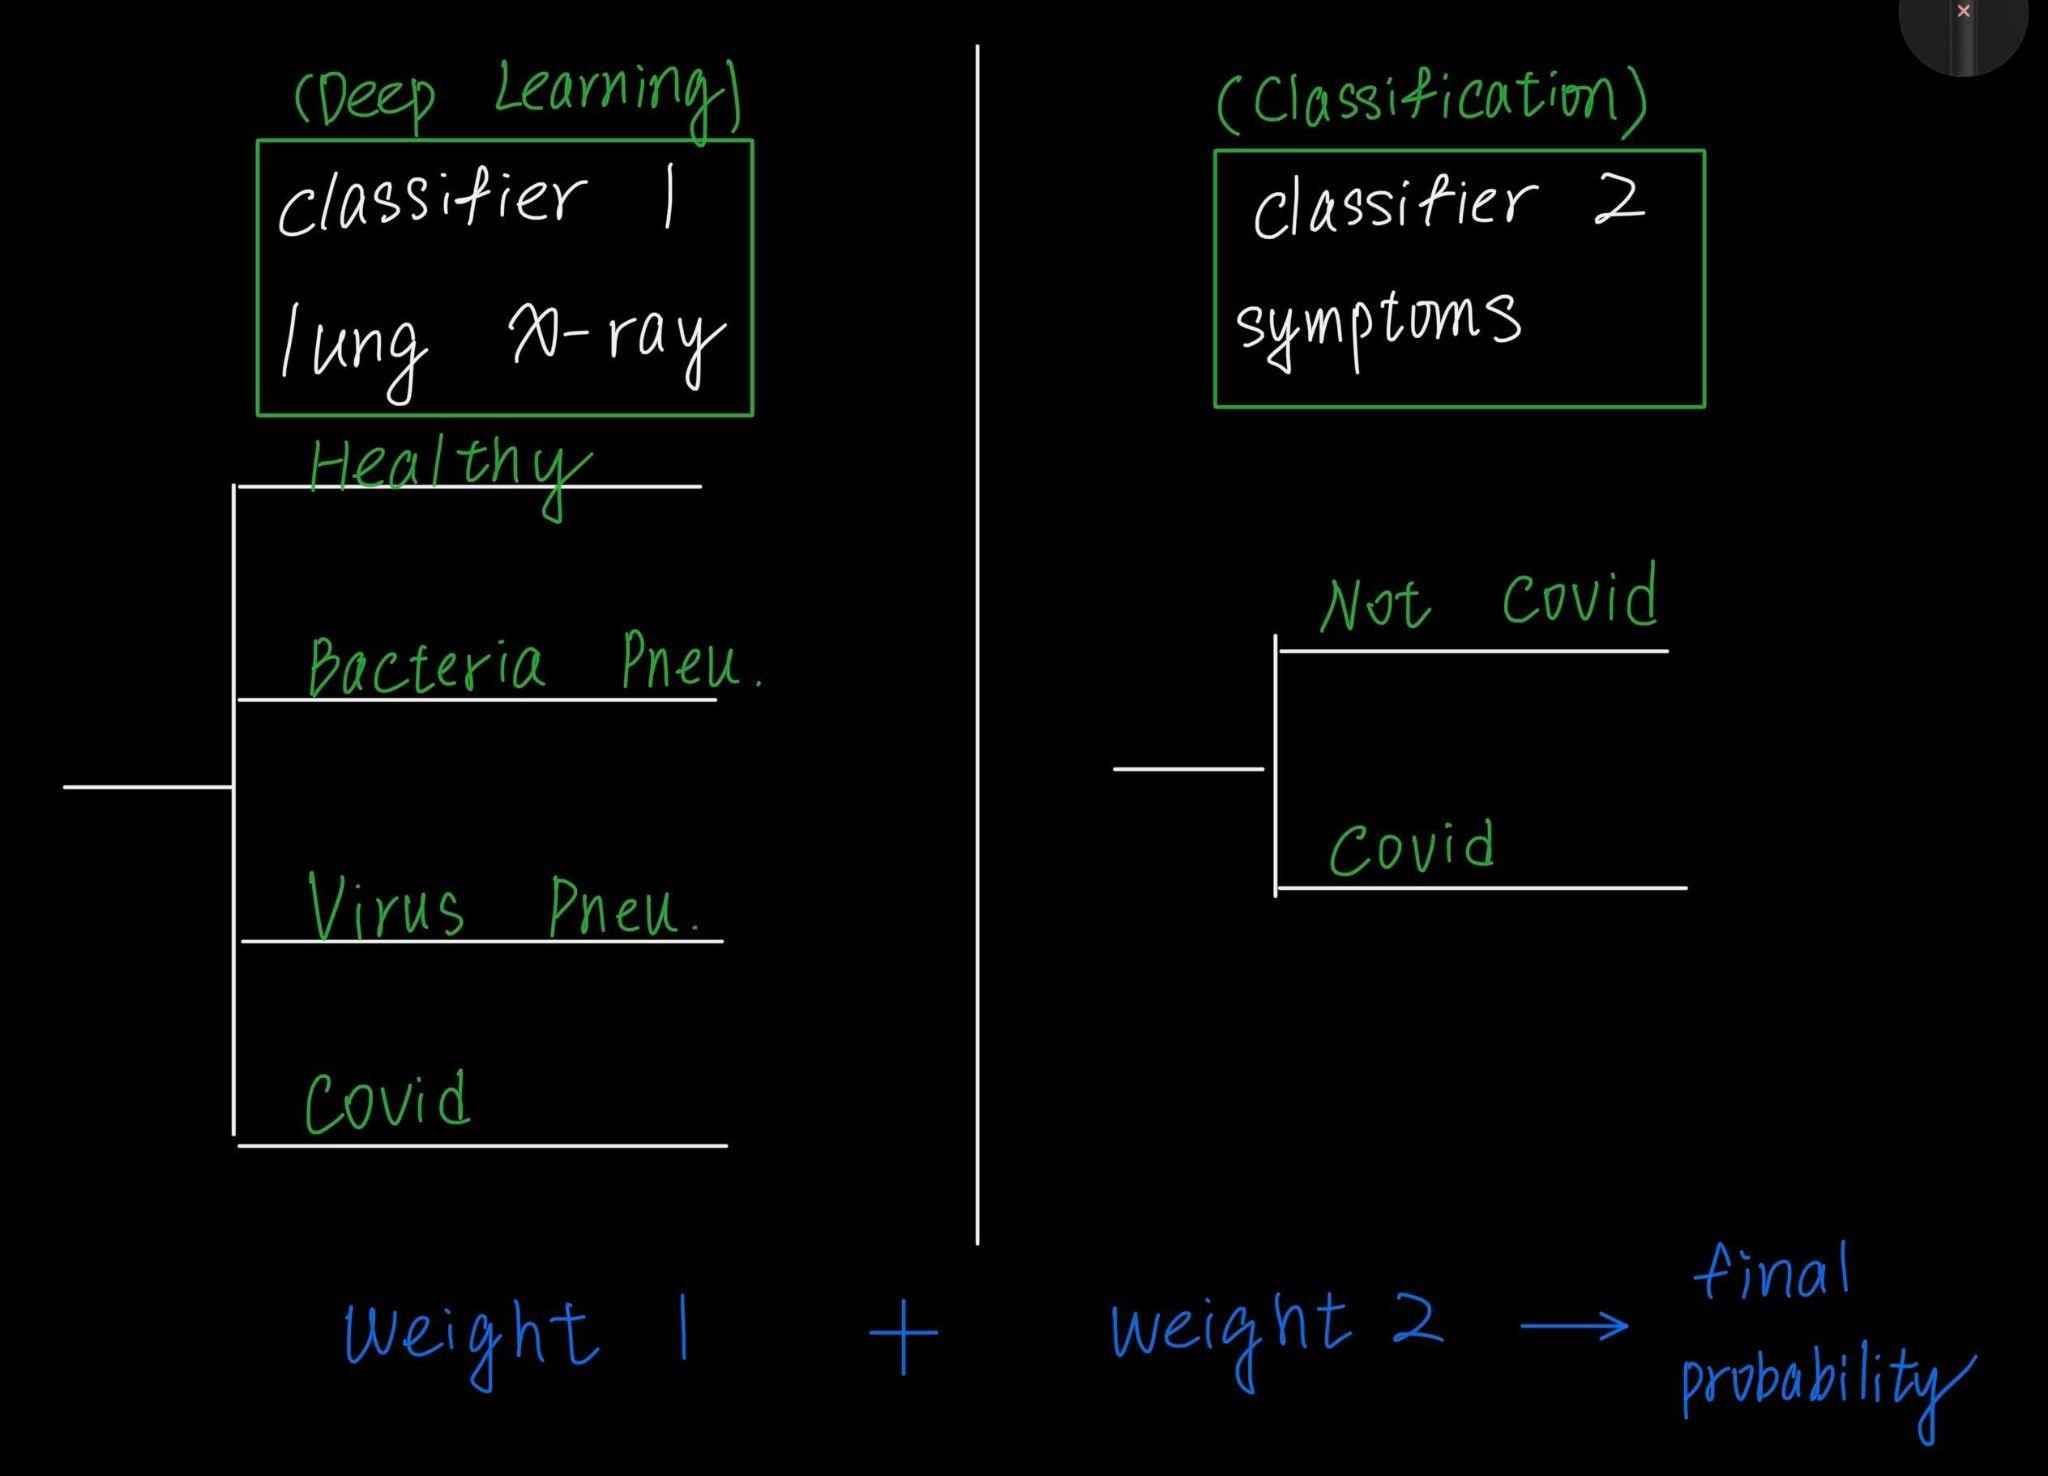 (Deep Learning)
classifier 1
lung x-ray
Healthy
Bacteria Pneu.
Virus Pneu.
Covid
(Classification)
classifier 2
symptoms
Not Covid
Covid
weight 1 + weight 2 → final
probability